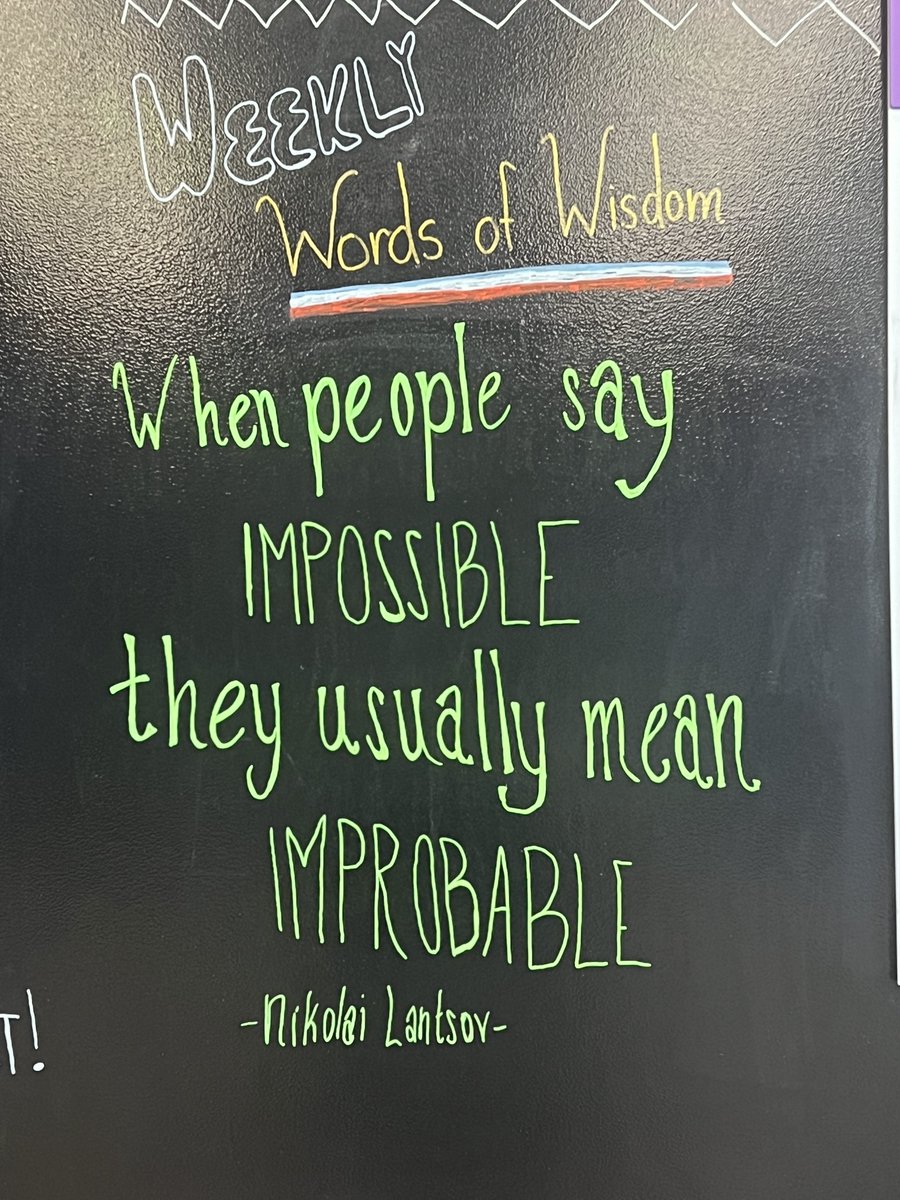 WEEKLY
Words of Wisdom
When people say
IMPOSSIBLE
they usually mean
IMPROBABLE
-Nikolai Lantsov-
T!